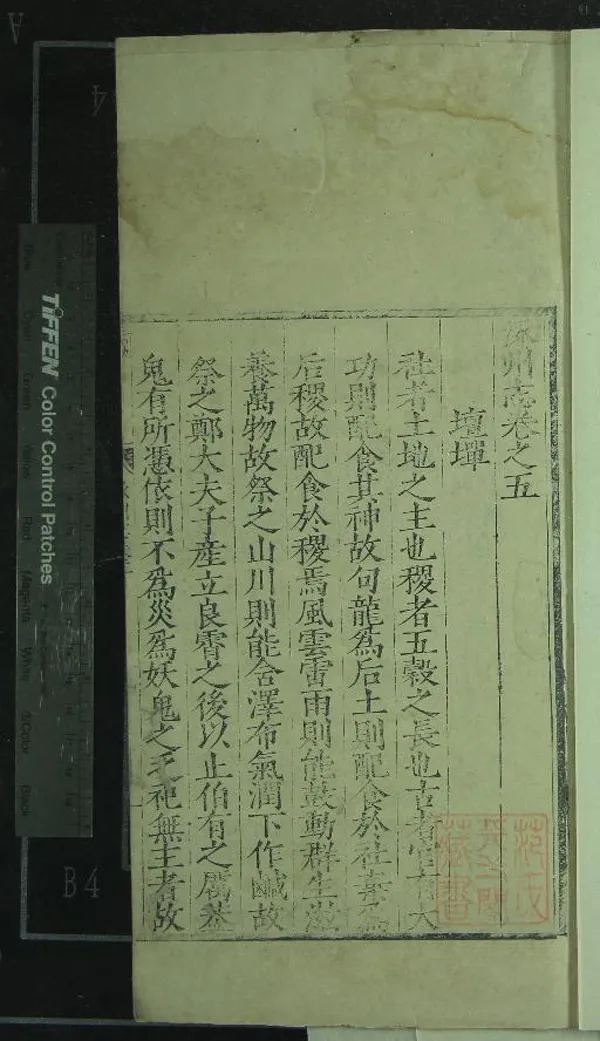 涿州志卷之五
壇墠
社者土地之主也稷者五穀之長也古者官有大
功則配食其神故句龍爲后土則配食於社棄爲
后稷故配食於稷焉風雲雷雨則能鼓動群生滋
養萬物故祭之山川則能含澤布氣潤下作鹹故
祭之鄭大夫子產立良霄之後以止伯有之厲蓋
鬼有所憑依則不爲災爲妖鬼之乏祀無主者故
范氏天一閣藏書
TIFFEN Color Control Patches
Red
Magenta
White
3/Color
Black
B4
4
A